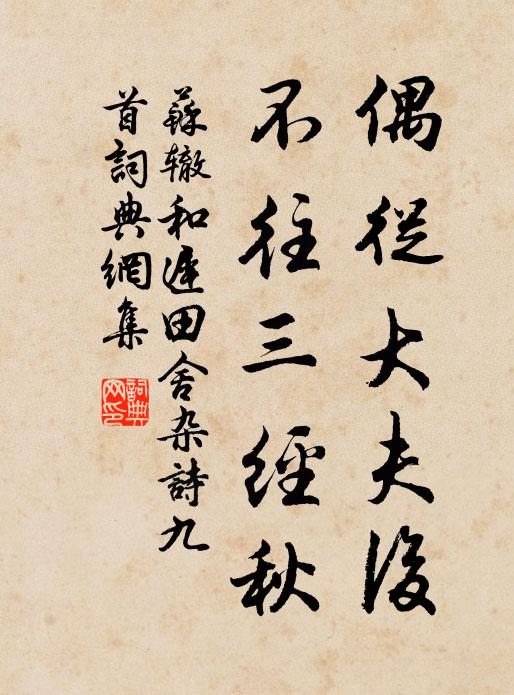 偶從大夫後
不往三經秋
蘇辙和遲田舍杂詩九
首詞典網集
詞典网印